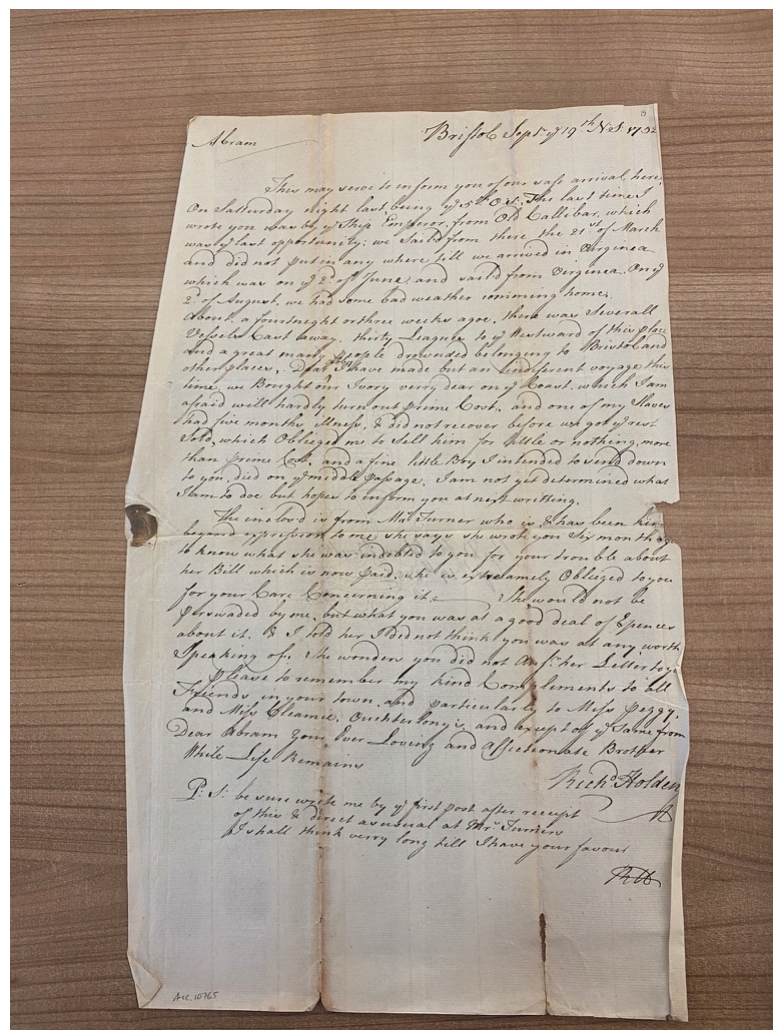 Abram
Bristol Sepr. ye 19th N.S. 1752
This may serve to inform you of our safe arrival, here,
On Satturday night last, being ye 5th O.S. The last time I
wrote you was by ye Ship Emperor, from Old Callibar, which
was ye last opportunity: we Sail'd from there the 21st of March
and did not put in any where till we arrived in Virginea
which was on ye 2d of June, and sail'd from Virginea. On ye
2d of August. we had some bad weather comming home,
About a fourtnight or three weeks agoe, there was Severall
Vessels Cast away, thirty Leagues to ye Westward of this place
and a great many people drownded belonging to Bristol and
other places, Dear I have made but an indifferent voyage this
time, we Bought our Ivory verry dear on ye Coast. which I am
afraid will hardly turn out prime Cost, and one of my Slaves
had five months illness, & did not recover before we got ye rest
Sold, which Obliged me to sell him for little or nothing, more
than prime Cost, and a fine little Boy I intended to send down
to you, died on ye middle passage. I am not yet determined what
I am to doe but hopes to inform you at next writting.
The inclos'd is from Mrs. Turner who is & has been kin
beyond expression to me, she says she wrote you Six months
to know what she was indebted to you for your trouble about
her Bill which is now paid, she is extreamely Obliged to you
for your Care Concerning it. She would not be
perswaded by me, but what you was at a good deal of Epences
about it. & I told her I did not think you was at any worth
Speaking of: She wonders you did not Ansr. her Letter
please to remember my kind Complements to all
Friends in your town. and particularly to Miss Peggy,
and Miss Cleamie, Ouchterlony's, and except of ye Same from
Dear Abram Your Ever Loving and affectionate Brother
While Life Remains
Richd. Holden
P: S: be sure wrote me by ye first post after receipt
of this & direct as usual at Mrs. Turners
I shall think verry long till I have your favour
RH
Acc. 10765